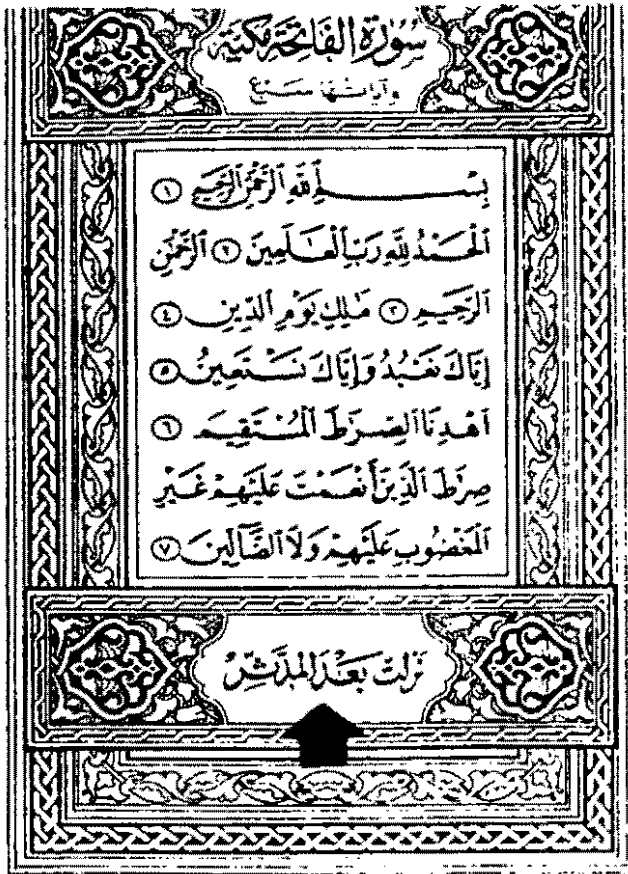 سُورَةُ الْفَاتِحَةِ مَكِّيَّة
وآياتها سبع
بِسْمِ ٱللَّهِ ٱلرَّحْمَٰنِ ٱلرَّحِيمِ ١
ٱلْحَمْدُ لِلَّهِ رَبِّ ٱلْعَٰلَمِينَ ٢ ٱلرَّحْمَٰنِ
ٱلرَّحِيمِ ٣ مَٰلِكِ يَوْمِ ٱلدِّينِ ٤
إِيَّاكَ نَعْبُدُ وَإِيَّاكَ نَسْتَعِينُ ٥
ٱهْدِنَا ٱلصِّرَٰطَ ٱلْمُسْتَقِيمَ ٦
صِرَٰطَ ٱلَّذِينَ أَنْعَمْتَ عَلَيْهِمْ غَيْرِ
ٱلْمَغْضُوبِ عَلَيْهِمْ وَلَا ٱلضَّآلِّينَ ٧
نَزَلَتْ بَعْدَ الْمُدَّثِّرِ